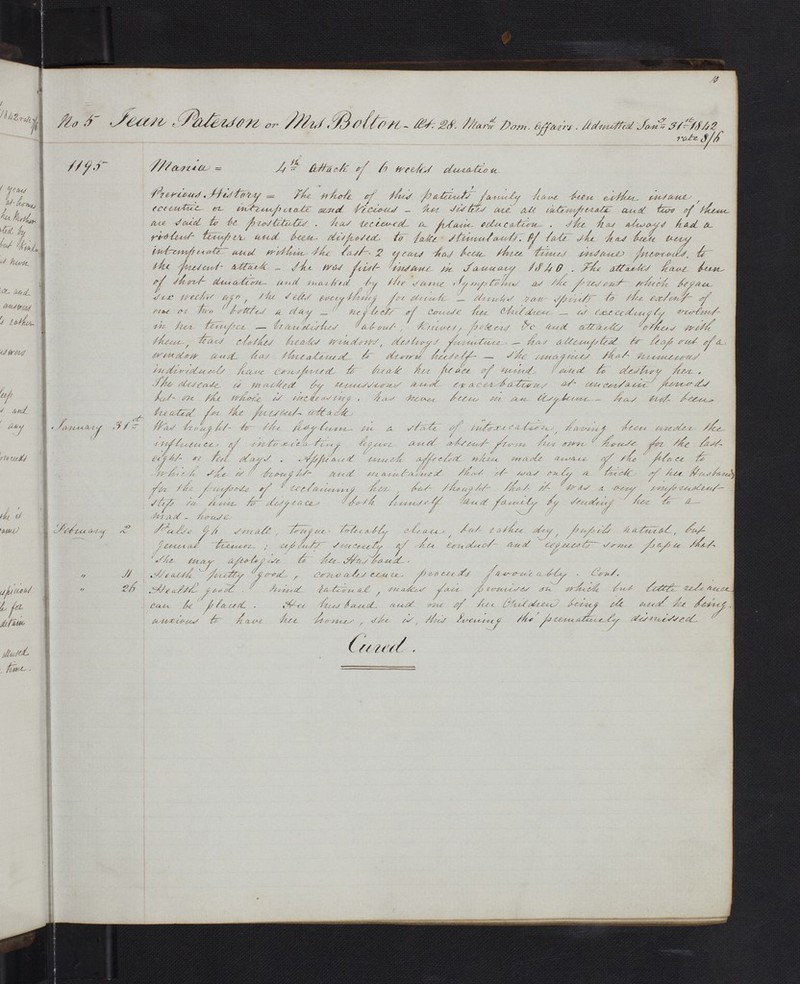 No 5 Jean Paterson or Mrs Bolton - Æt. 28. Mard Dom. Affairs. Admitted Jany 31st 1842
rate 8/6
1195 Mania = 4th Attack of 6 weeks duration
Previous History = The whole of this patients family have been either insane,
eccentric or intemperate and Vicious - her sisters are all intemperate and two of them
are said to be prostitutes. has recieved a plain education. She has always had a
violent temper and been disposed to take stimulants. Of late she has been very
intemperate and within the last 2 years has been three times insane previous to
the present attack - She was first insane in January 1840. The attacks have been
of short duration and marked by the same symptoms as the present which began
six weeks ago, she sells everything for drink - drinks raw spirits to the extent of
one or two bottles a day - neglects of course her children - is exceedingly violent
in her temper - brandishes about, knives, pokers &c and attacks others with
them, tears clothes breaks windows, destroys furniture - has attempted to leap out of a
window and has threatened to drown herself - She imagines that numerous
individuals have conspired to break her peace of mind and to destroy her.
The disease is marked by remissions and exacerbations at uncertain periods
but on the whole is increasing. has never been in an Asylum - has not been
treated for the present attack
January 31st Was brought to the Asylum in a state of intoxication, having been under the
influence of intoxicating liquor and absent from her own house for the last
eight or ten days. Appeared much affected when made aware of the place to
which she is brought and maintained that it was only a trick of her Husbands
for the purpose of reclaiming her but thought that it was a very imprudent
step in him to disgrace both himself and family by sending her to a
mad-house
February 2 Pulse 96 small, tongue tolerably clean, but rather dry, pupils natural, but
general tremor; repents sincerely of her conduct and requests some paper that
she may apologise to her Husband.
" 11 Health pretty good, convalescence proceeds favourably. Cont.
" 26 Health good. mind rational, makes fair promises on which but little reliance
can be placed. Her husband and one of her Children being ill and he being
anxious to have her home, she is, this Evening tho' prematurely dismissed
Cured.